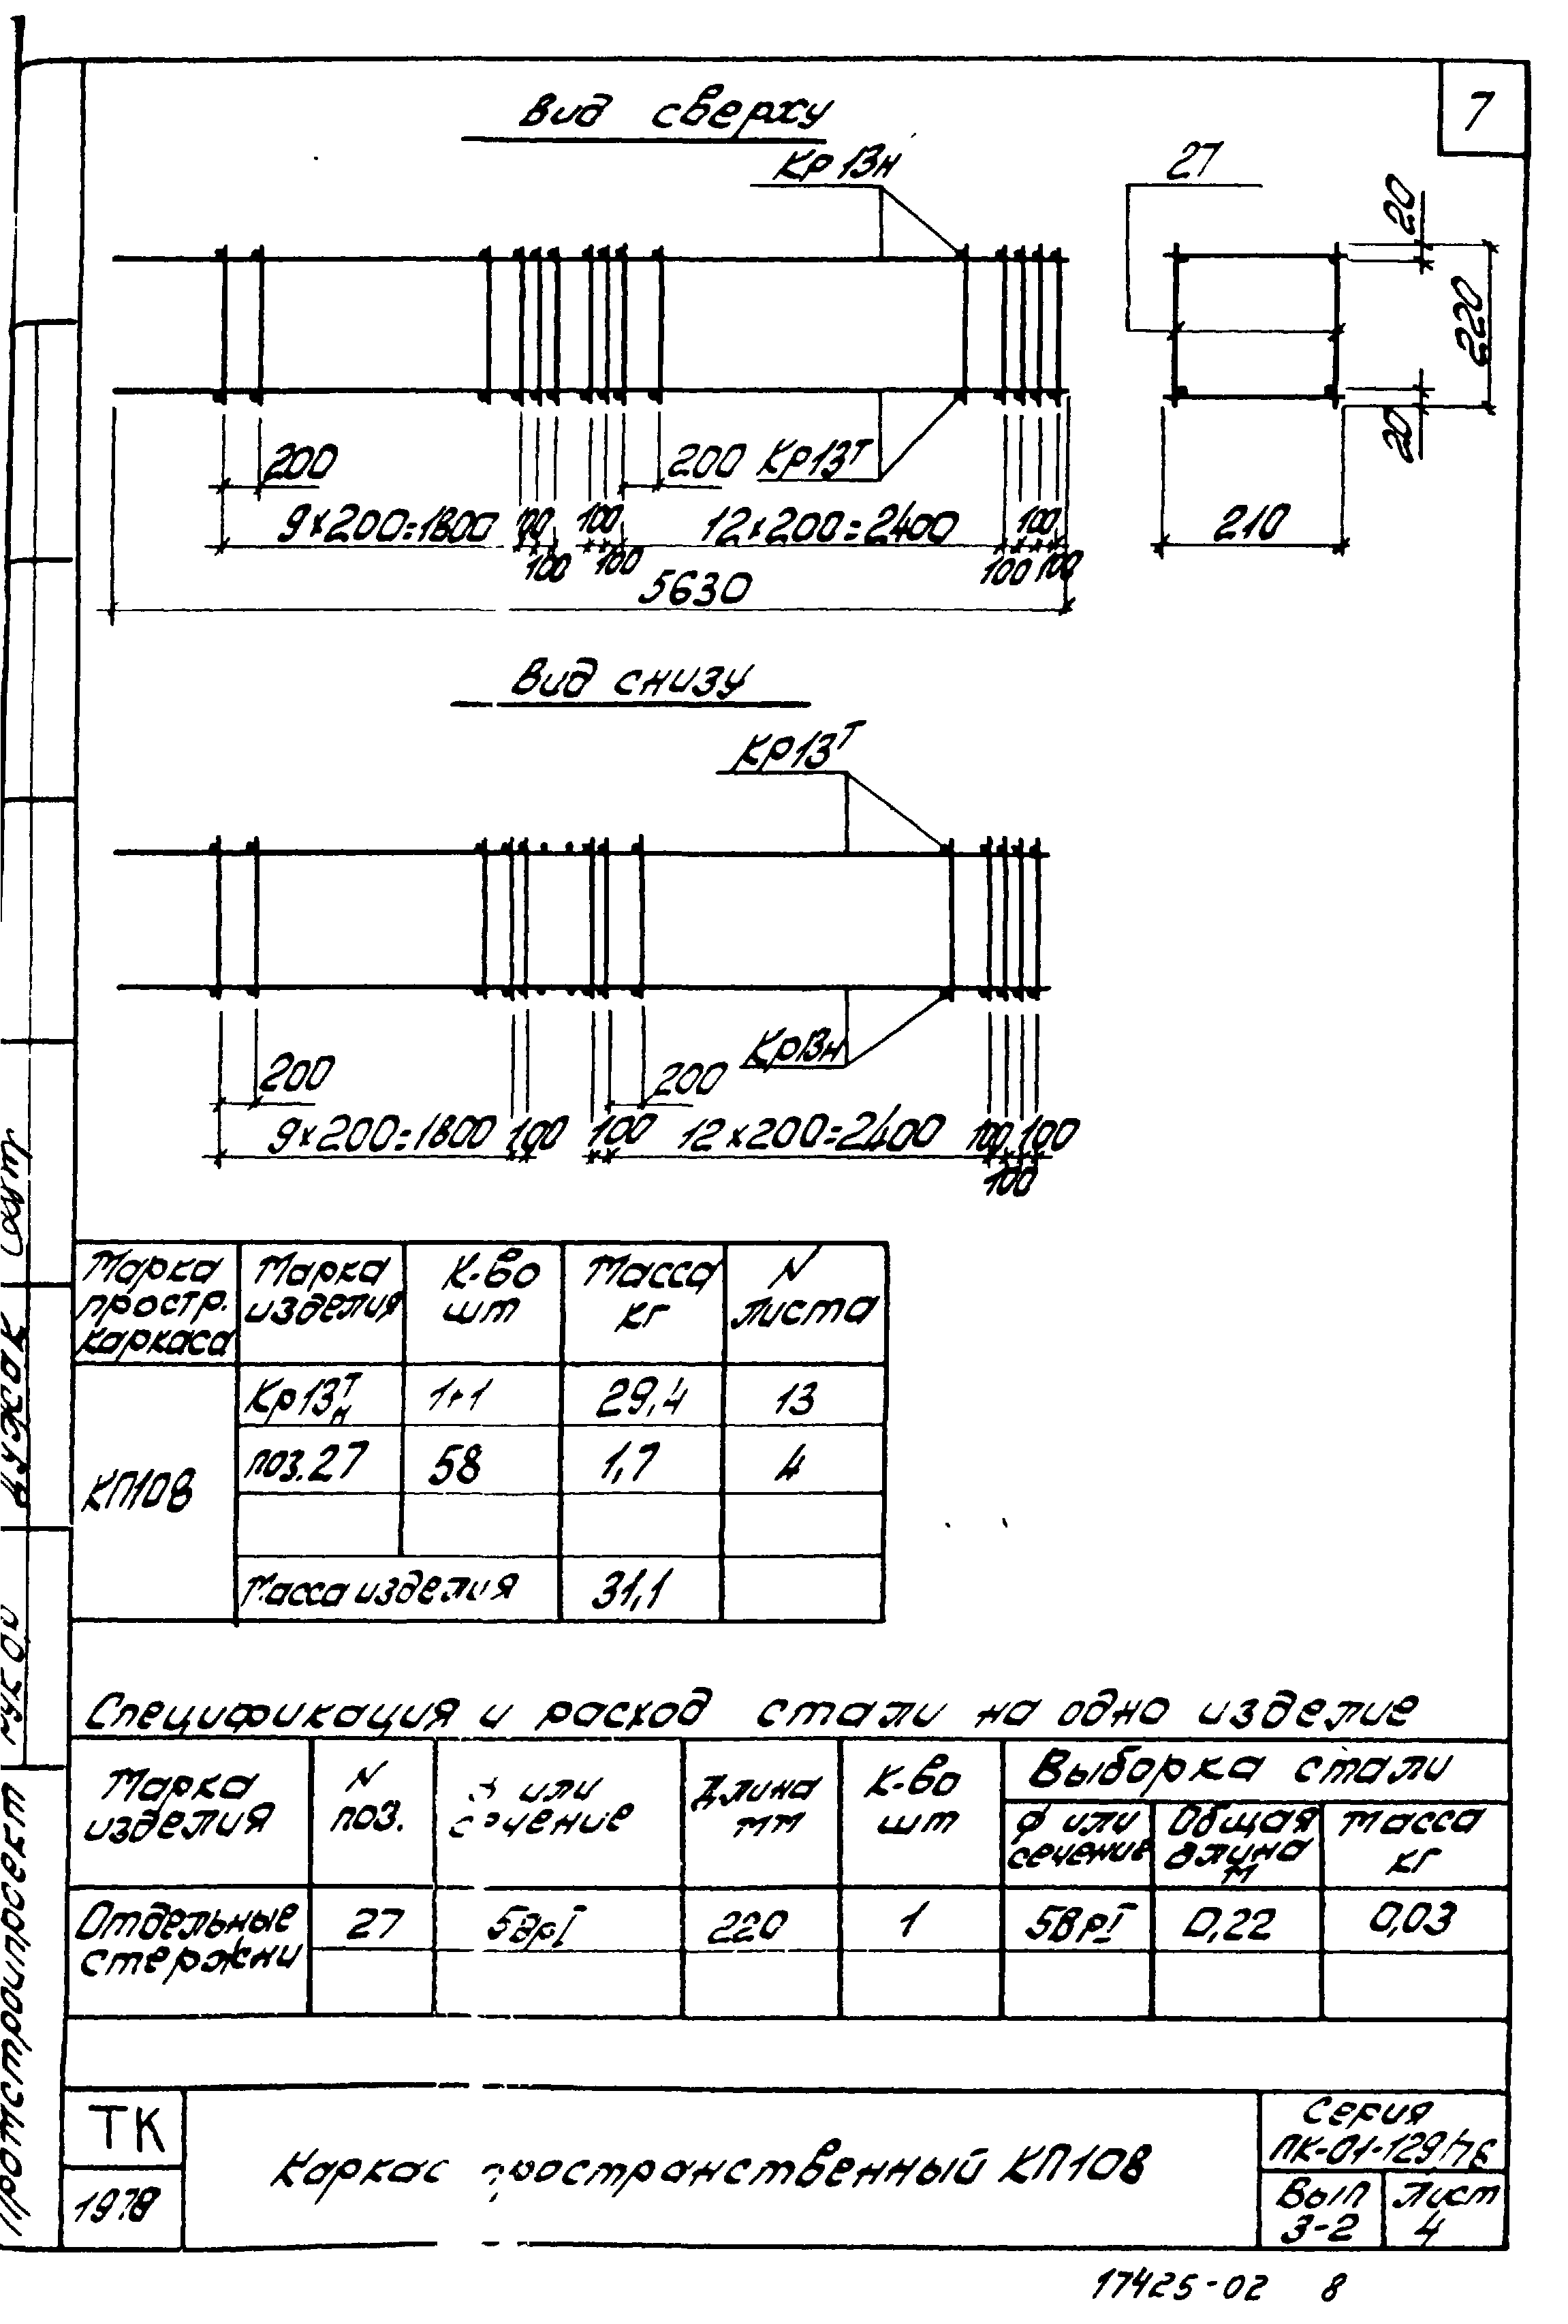 7
Вид сверху
Кр13н
27
20
220
20
200
200
Кр13т
9×200=1800
100
100
100
100
12×200=2400
100
100
100
210
5630
Вид снизу
Кр13т
200
200
Кр13н
9×200=1800
100
100
12×200=2400
100
100
100
Марка простр. каркаса
Марка изделия
К-во шт
Масса кг
N листа
КП108
Кр13т н
1+1
29,4
13
поз.27
58
1,7
4
Масса изделия
31,1
Спецификация и расход стали на одно изделие
Марка изделия
N поз.
или сечение
Длина мм
К-во шт
Выборка стали
ф или сечение
Общая длина м
Масса кг
Отдельные стержни
27
5ВрI
220
1
5ВрI
0,22
0,03
ТК
1978
Каркас пространственный КП108
Серия
ПК-01-129/78
Вып 3-2
Лист 4
17425-02 8